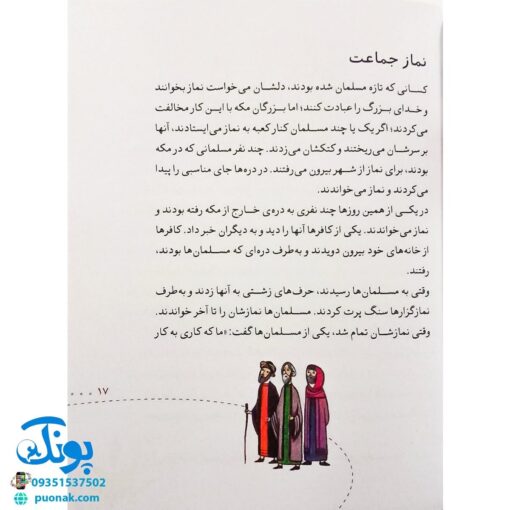 نماز جماعت
کسانی که تازه مسلمان شده بودند، دلشان می‌خواست نماز بخوانند
و خدای بزرگ را عبادت کنند؛ اما بزرگان مکه با این کار مخالفت
می‌کردند؛ اگر یک یا چند مسلمان کنار کعبه به نماز می‌ایستادند، آنها
بر سرشان می‌ریختند و کتکشان می‌زدند. چند نفر مسلمانی که در مکه
بودند، برای نماز از شهر بیرون می‌رفتند. در دره‌ها جای مناسبی را پیدا
می‌کردند و نماز می‌خواندند.
در یکی از همین روزها چند نفری به دره‌ی خارج از مکه رفته بودند و
نماز می‌خواندند. یکی از کافرها آنها را دید و به دیگران خبر داد. کافرها
از خانه‌های خود بیرون دویدند و به‌طرف دره‌ای که مسلمان‌ها بودند،
رفتند.
وقتی به مسلمان‌ها رسیدند، حرف‌های زشتی به آنها زدند و به‌طرف
نمازگزارها سنگ پرت کردند. مسلمان‌ها نمازشان را تا آخر خواندند.
وقتی نمازشان تمام شد، یکی از مسلمان‌ها گفت: «ما که کاری به کار
۱۷
پونک
09351537502
puonak.com